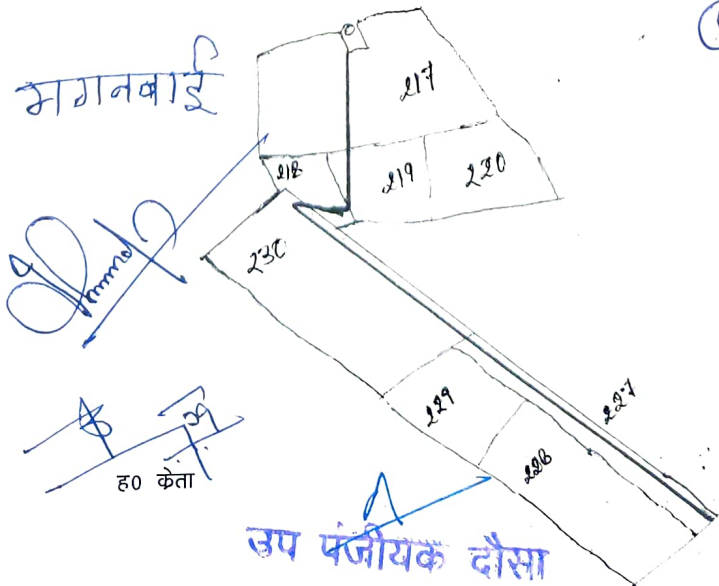 मगनबाई
217
218
219
220
230
229
227
228
ह० केता
उप पंजीयक दौसा